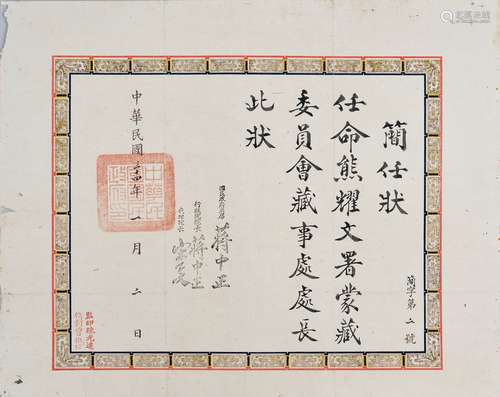 簡任狀
任命熊耀文署蒙藏
委員會藏事處處長
此狀
國民政府主席 蔣中正
行政院院長 蔣中正
中華民國三十四年一月二日
簡字第二號